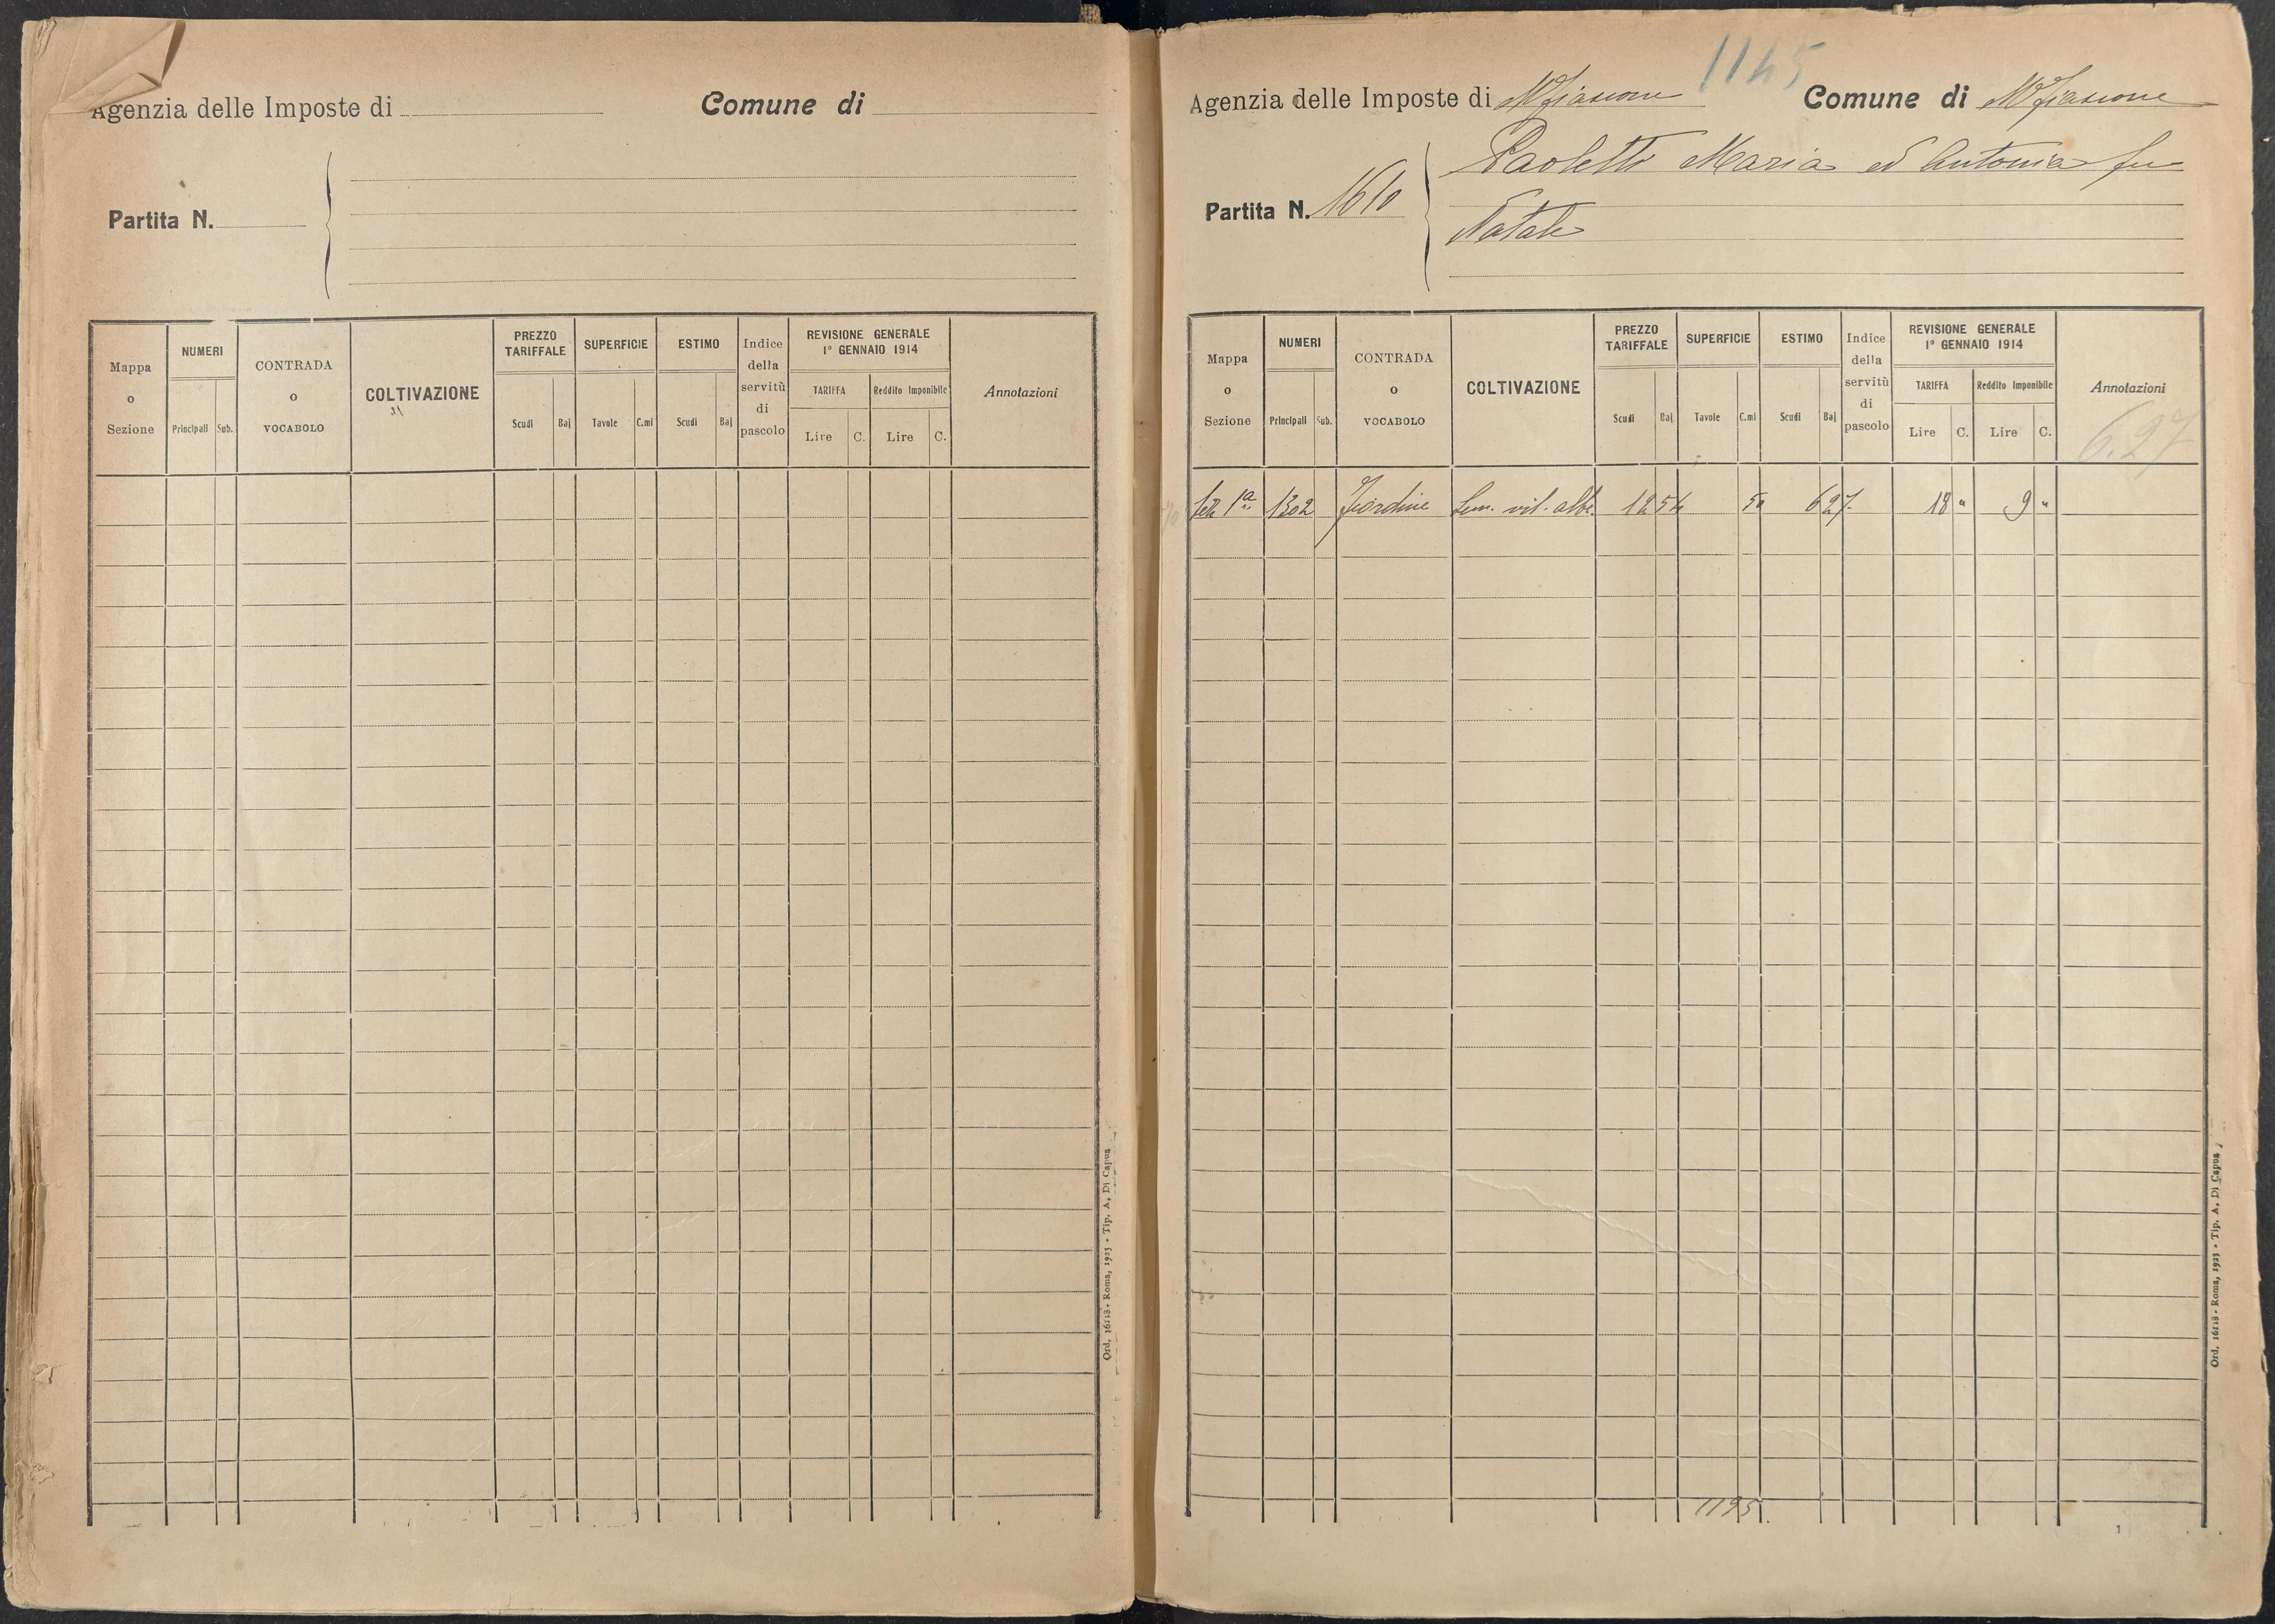 Agenzia delle Imposte di
Comune di
Partita N.
Mappa o Sezione
NUMERI
Principali Sub.
CONTRADA o VOCABOLO
COLTIVAZIONE
PREZZO TARIFFALE
Scudi Baj
SUPERFICIE
Tavole C.mi
ESTIMO
Scudi Baj
Indice della servitù di pascolo
REVISIONE GENERALE
1° GENNAIO 1914
TARIFFA Reddito Imponibile
Lire C. Lire C.
Annotazioni
Ord. 16118 - Roma, 1923 - Tip. A. Di Capua
1145
Agenzia delle Imposte di Mfiascone Comune di Mfiascone
Paoletti Maria ed Antonia fu
Partita N. 1610
Natale
Mappa o Sezione
NUMERI
Principali Sub.
CONTRADA o VOCABOLO
COLTIVAZIONE
PREZZO TARIFFALE
Scudi Baj
SUPERFICIE
Tavole C.mi
ESTIMO
Scudi Baj
Indice della servitù di pascolo
REVISIONE GENERALE
1° GENNAIO 1914
TARIFFA Reddito Imponibile
Lire C. Lire C.
Annotazioni
6.27
1ª 1302 Fiordine Sem. vit. alb. 12 54 50 6 27 18 " 9 "
1195.
Ord. 16118 - Roma, 1923 - Tip. A. Di Capua